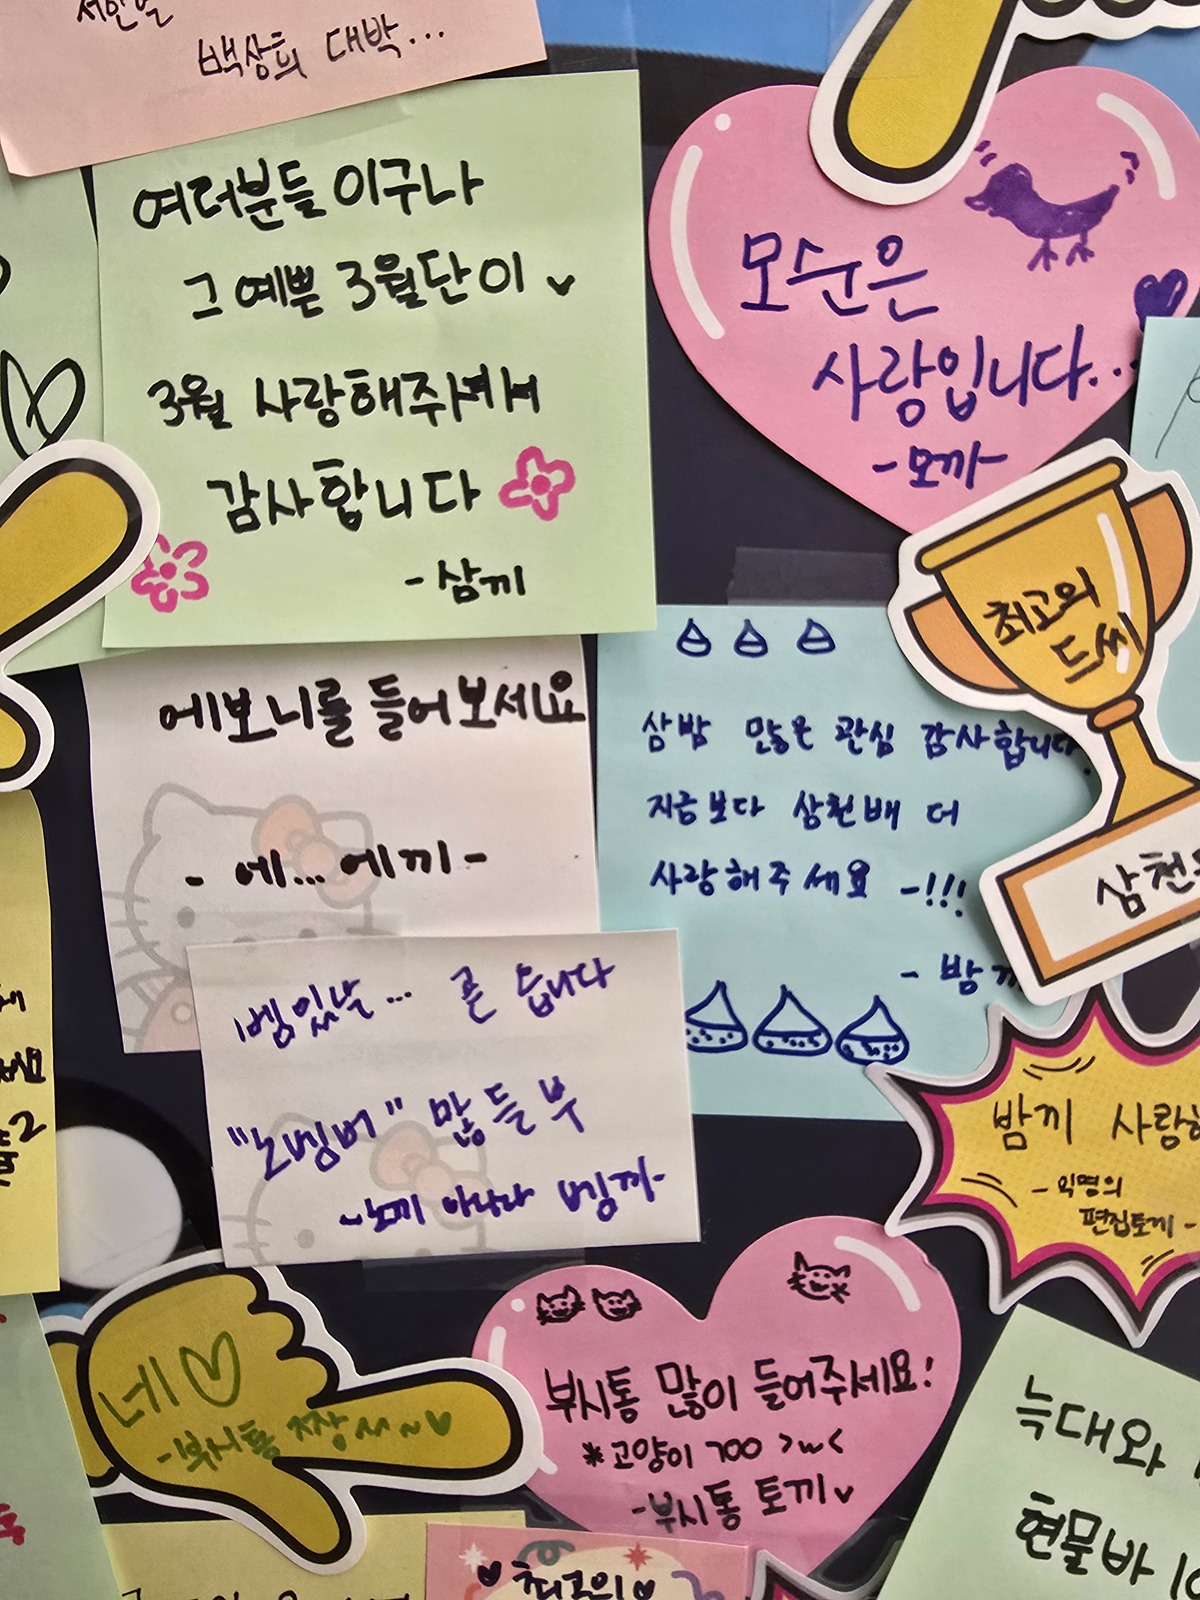 백상희 대박...
여러분들 이구나
그 예쁜 3월단이
3월 사랑해주셔서
감사합니다
-삼끼
모순은
사랑입니다...
-모끼-
최고의
드씨
삼천
에보니를 들어보세요
- 에...에끼-
삼밤 많은 관심 감사합니다.
지금보다 삼천배 더
사랑해주세요 -!!!
- 밤
곧 듭니다
"노빙버" 많들부
-노끼 아니라 빙끼-
밤끼 사랑해
-익명의
편집토끼-
네
-부시통 짱~
부시통 많이 들어주세요!
*고양이 700 >w<
-부시통 토끼
늑대와
현물바 10
최고의